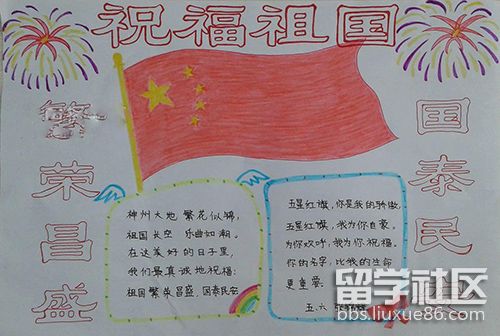 祝福祖国
繁荣昌盛
国泰民
神州大地 繁花似锦,
祖国长空 乐曲如潮。
在这美好的日子里,
我们最真诚地祝福:
祖国繁荣昌盛、国泰民安
五星红旗,你是我的骄傲,
五星红旗,我为你自豪,
为你欢呼,我为你祝福,
你的名字,比我的生命
更重要。
五.六
留学社区
bbs.liuxue86.com